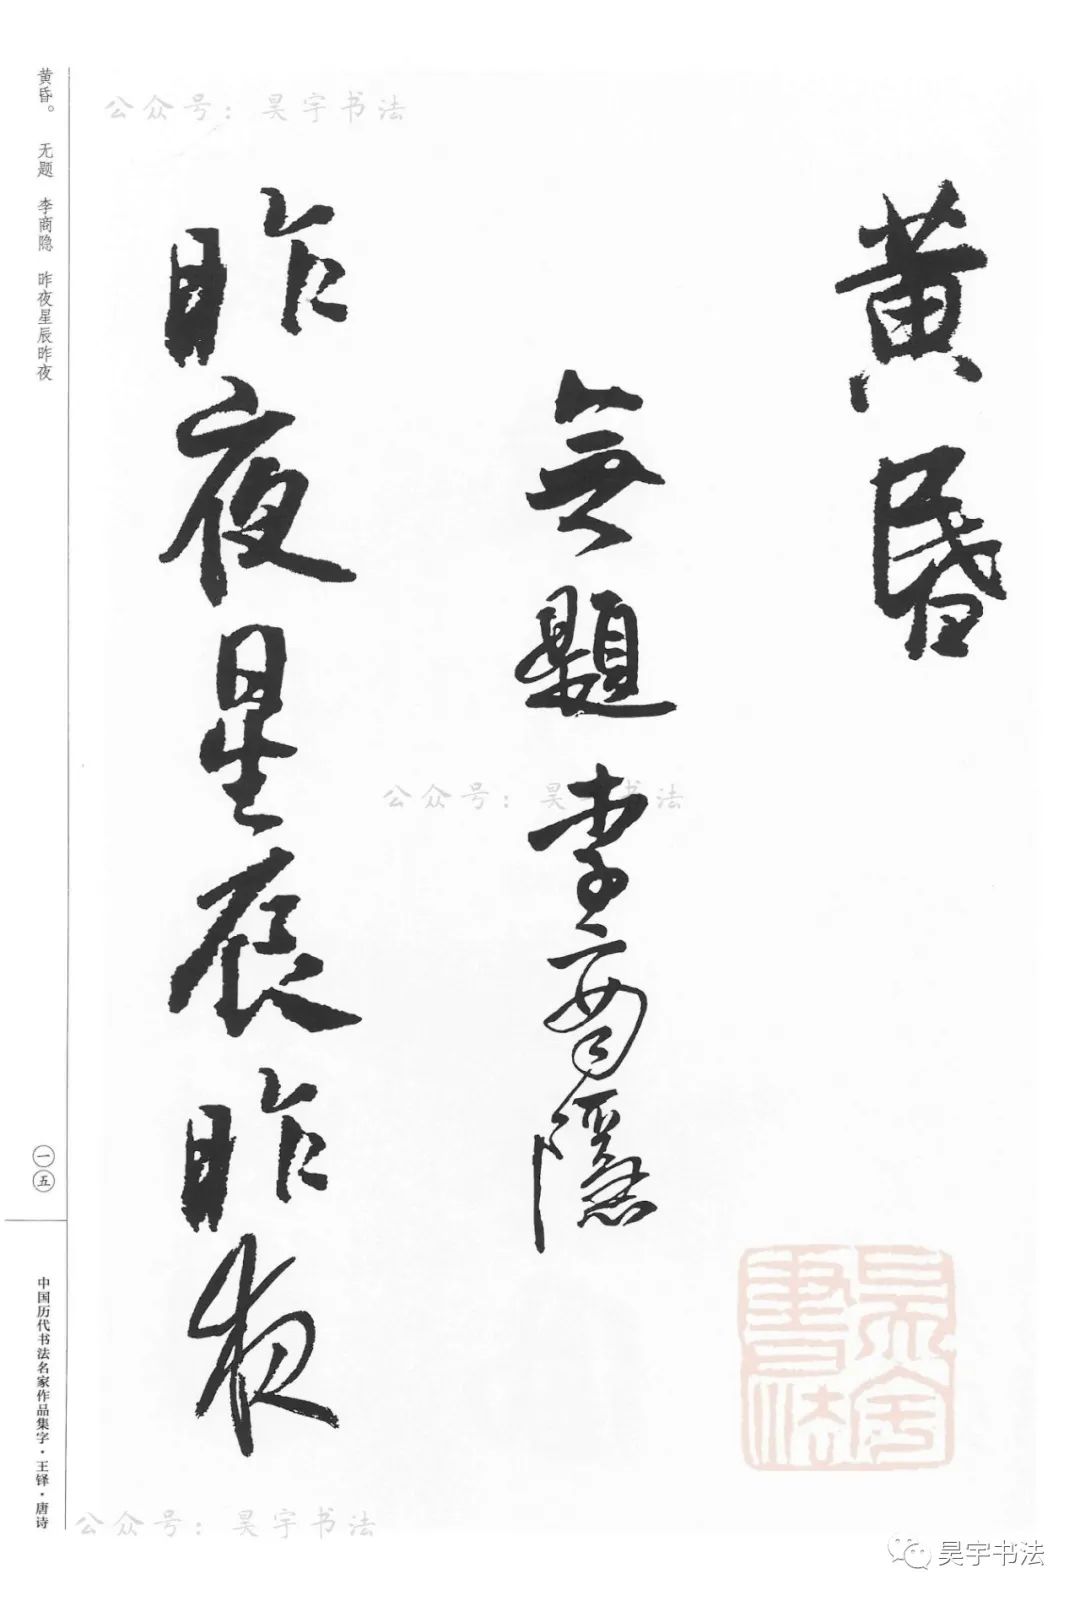 黄昏
無題 李商隱
昨夜星辰昨夜
黄昏。 无题 李商隐 昨夜星辰昨夜
一五
中国历代书法名家作品集字·王铎·唐诗
公众号：昊宇书法
公众号：昊宇书法
公众号：昊宇书法
昊宇書法
昊宇书法